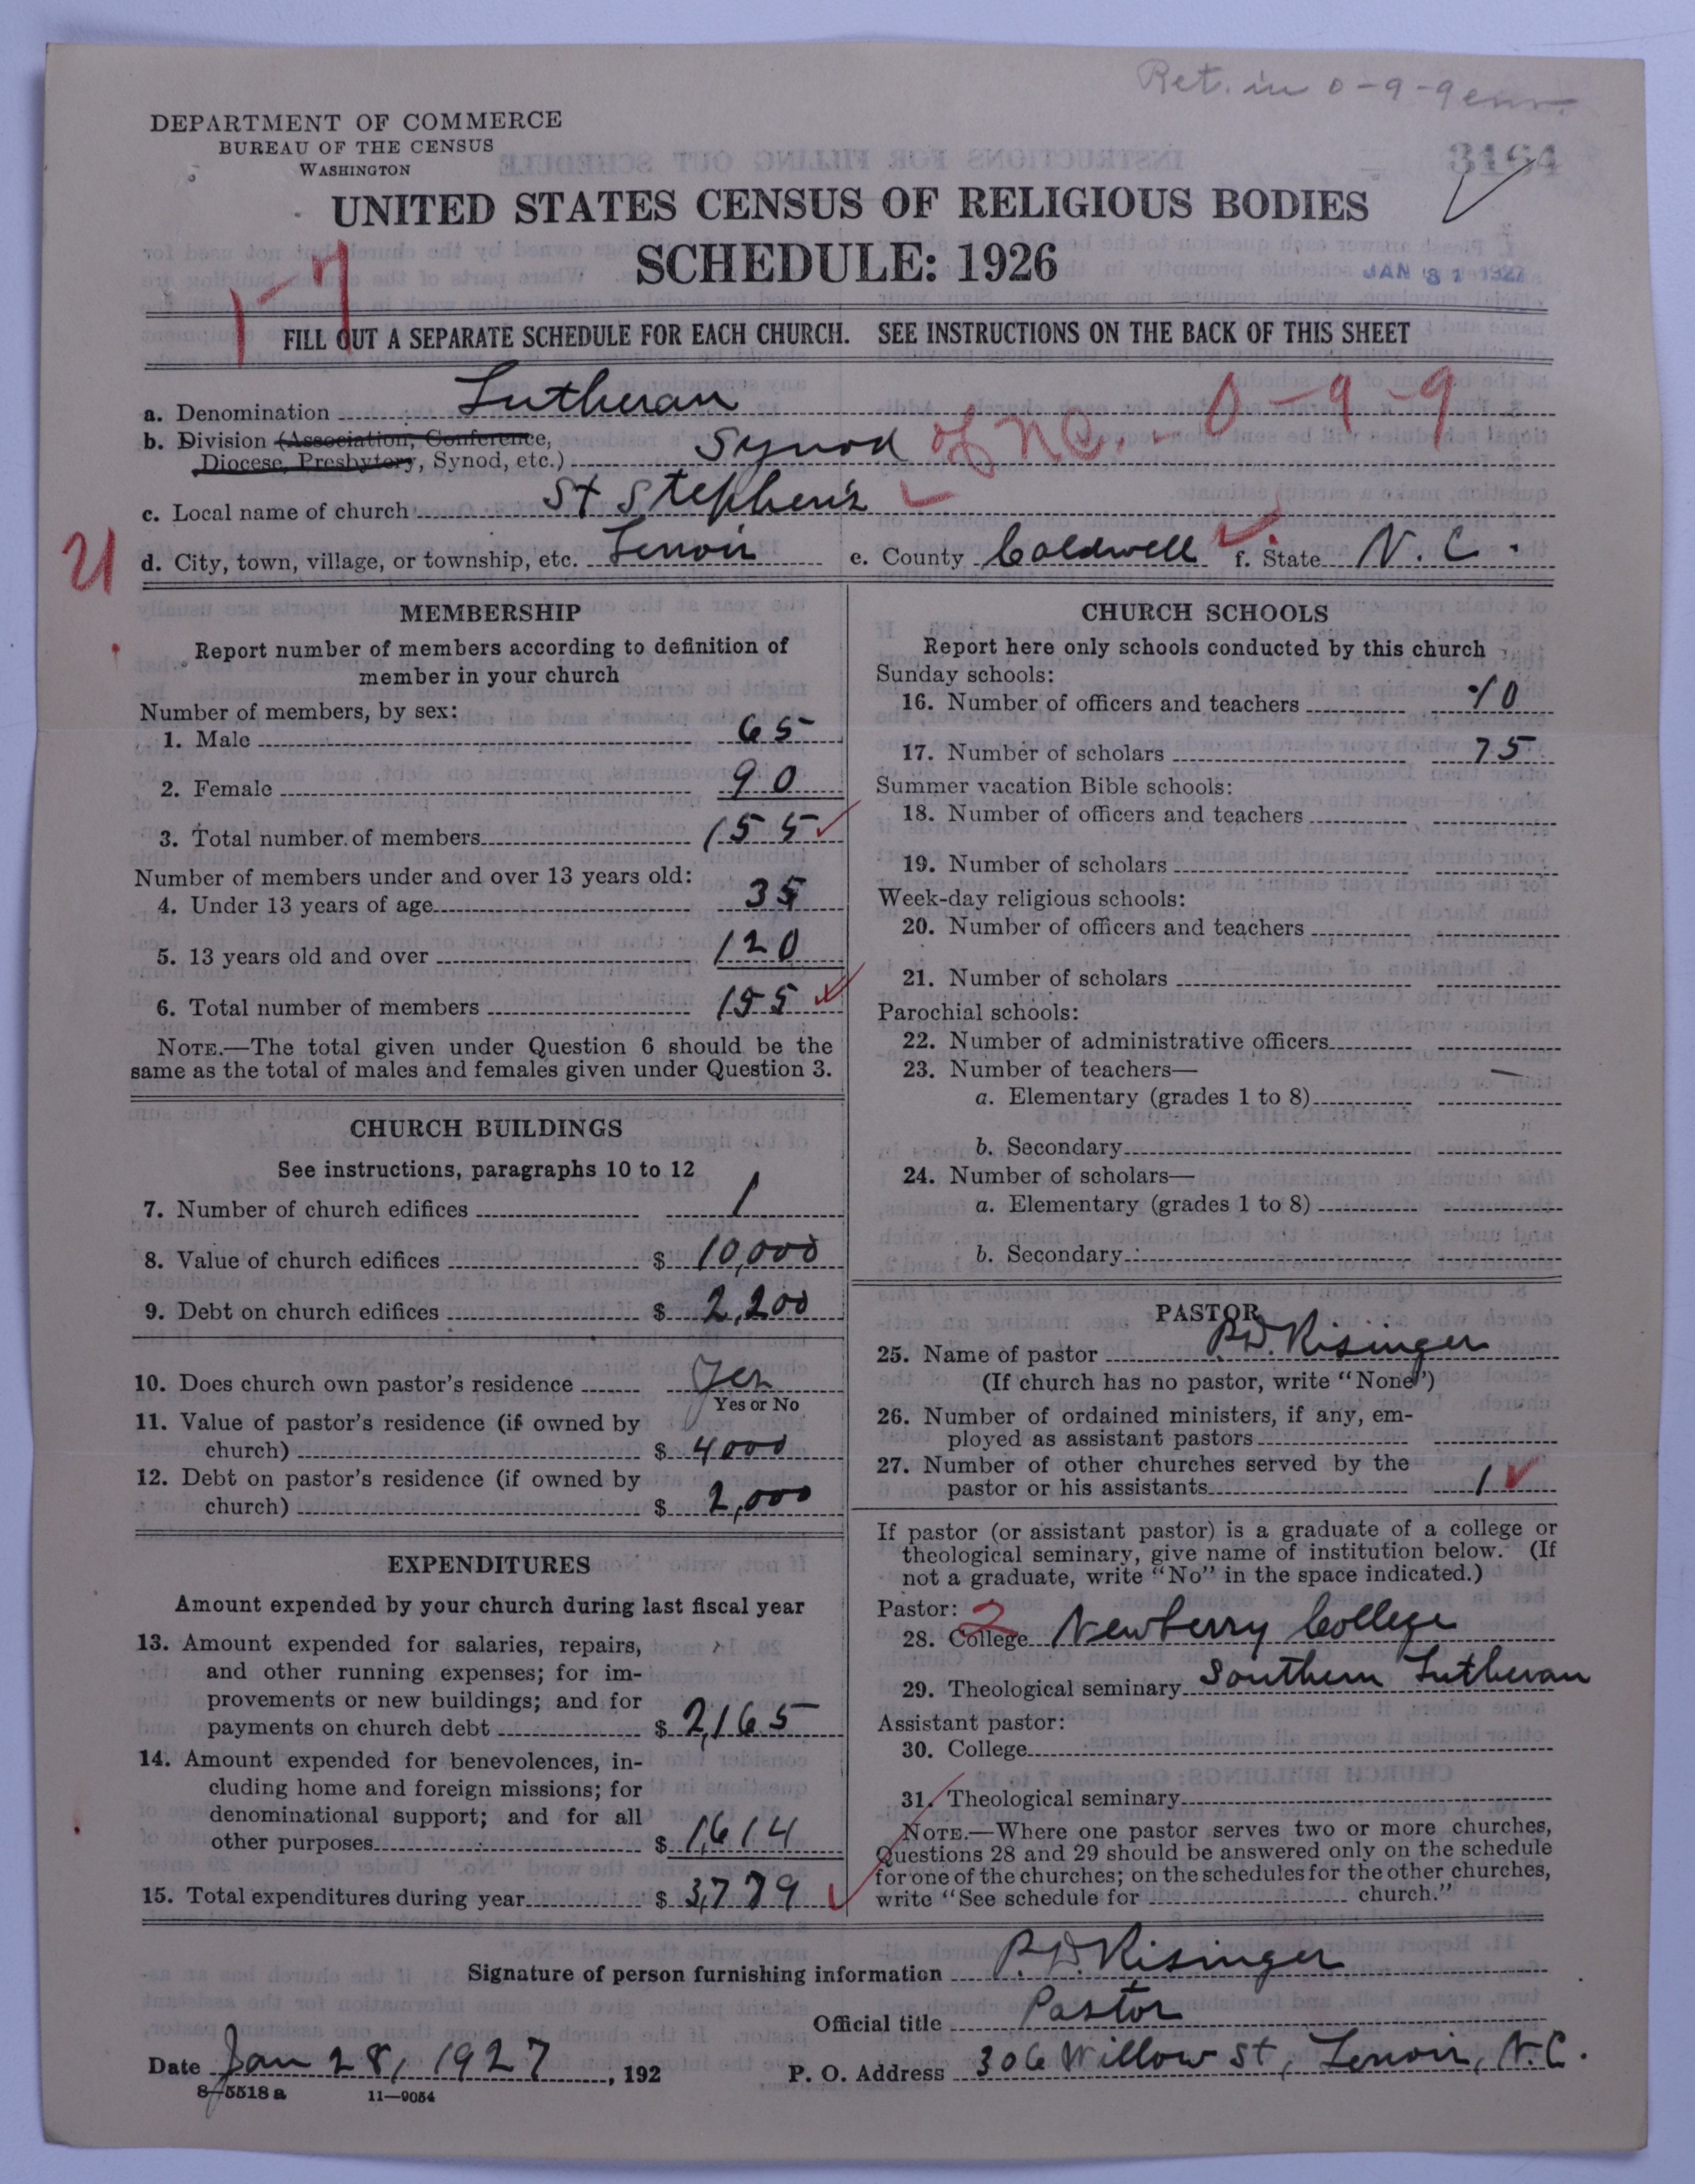 Ret. in 0-9-9 env.
DEPARTMENT OF COMMERCE
BUREAU OF THE CENSUS
WASHINGTON
3164
UNITED STATES CENSUS OF RELIGIOUS BODIES
SCHEDULE: 1926
JAN 31 1927
1-7
FILL OUT A SEPARATE SCHEDULE FOR EACH CHURCH. SEE INSTRUCTIONS ON THE BACK OF THIS SHEET
a. Denomination Lutheran
b. Division (Association, Conference,
Diocese, Presbytery, Synod, etc.) Synod of N.C. - 0-9-9
c. Local name of church St Stephen's
21
d. City, town, village, or township, etc. Lenoir e. County Caldwell f. State N.C.
MEMBERSHIP
Report number of members according to definition of
member in your church
Number of members, by sex:
1. Male 65
2. Female 90
3. Total number of members 155
Number of members under and over 13 years old:
4. Under 13 years of age 35
5. 13 years old and over 120
6. Total number of members 155
NOTE.—The total given under Question 6 should be the
same as the total of males and females given under Question 3.
CHURCH BUILDINGS
See instructions, paragraphs 10 to 12
7. Number of church edifices 1
8. Value of church edifices $ 10,000
9. Debt on church edifices $ 2,200
10. Does church own pastor's residence Yes
Yes or No
11. Value of pastor's residence (if owned by
church) $ 4000
12. Debt on pastor's residence (if owned by
church) $ 2,000
EXPENDITURES
Amount expended by your church during last fiscal year
13. Amount expended for salaries, repairs,
and other running expenses; for im-
provements or new buildings; and for
payments on church debt $ 2,165
14. Amount expended for benevolences, in-
cluding home and foreign missions; for
denominational support; and for all
other purposes $ 1,614
15. Total expenditures during year $ 3,779
CHURCH SCHOOLS
Report here only schools conducted by this church
Sunday schools:
16. Number of officers and teachers 10
17. Number of scholars 75
Summer vacation Bible schools:
18. Number of officers and teachers
19. Number of scholars
Week-day religious schools:
20. Number of officers and teachers
21. Number of scholars
Parochial schools:
22. Number of administrative officers
23. Number of teachers—
a. Elementary (grades 1 to 8)
b. Secondary
24. Number of scholars—
a. Elementary (grades 1 to 8)
b. Secondary
PASTOR
25. Name of pastor P.D. Risinger
(If church has no pastor, write "None")
26. Number of ordained ministers, if any, em-
ployed as assistant pastors
27. Number of other churches served by the
pastor or his assistants 1
If pastor (or assistant pastor) is a graduate of a college or
theological seminary, give name of institution below. (If
not a graduate, write "No" in the space indicated.)
Pastor: 2
28. College Newberry College
29. Theological seminary Southern Lutheran
Assistant pastor:
30. College
31. Theological seminary
NOTE.—Where one pastor serves two or more churches,
Questions 28 and 29 should be answered only on the schedule
for one of the churches; on the schedules for the other churches,
write "See schedule for church."
Signature of person furnishing information P.D. Risinger
Official title Pastor
Date Jan 28, 1927, 192 P. O. Address 306 Willow St, Lenoir, N.C.
8-5518a 11—9054